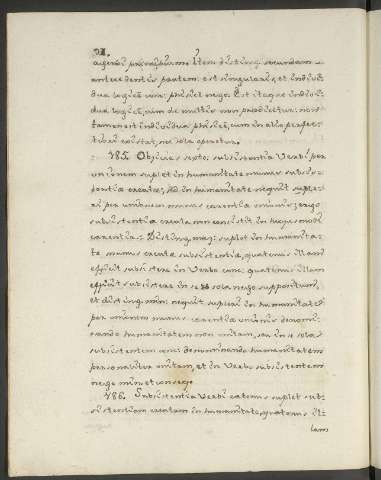 agendi principium. Item disting. secundam
antecedentis partem: est singularis, et indivi-
dua logicè conc: physicè nego. Est itaque indivi-
dua logicè, cum de multis non prædicetur: non
tamen est individua physicè, cum in alia perfec-
tiori existat, nec sola operetur.
185. Objicies sexto: subsistentia Verbi per
unionem suplet in humanitate munus subsis-
tentiæ creatæ; sed in humanitate nequit suple-
ri per unionem munus carentiæ unionis; ergo
subsistentia creata non consistit in hujusmodi
carentia. Disting. maj: suplet in humanita-
te munus creatæ subsistentiæ, quatenus illam
efficit subsistere in Verbo conc: quatenus illam
efficit subsistere in se sola nego suppositum;
et disting. min: nequit supleri in humanitate
per unionem munus carentiæ unionis denomi-
nando humanitatem non unitam, seu in se sola
subsistentem conc: denominando humanitatem
personaliter unitam, et in Verbo subsistentem
nego min. et conseq.
186. Subsistentia Verbi eatenus suplet sub-
sistentiam creatam in humanitate, quatenus il-
lam